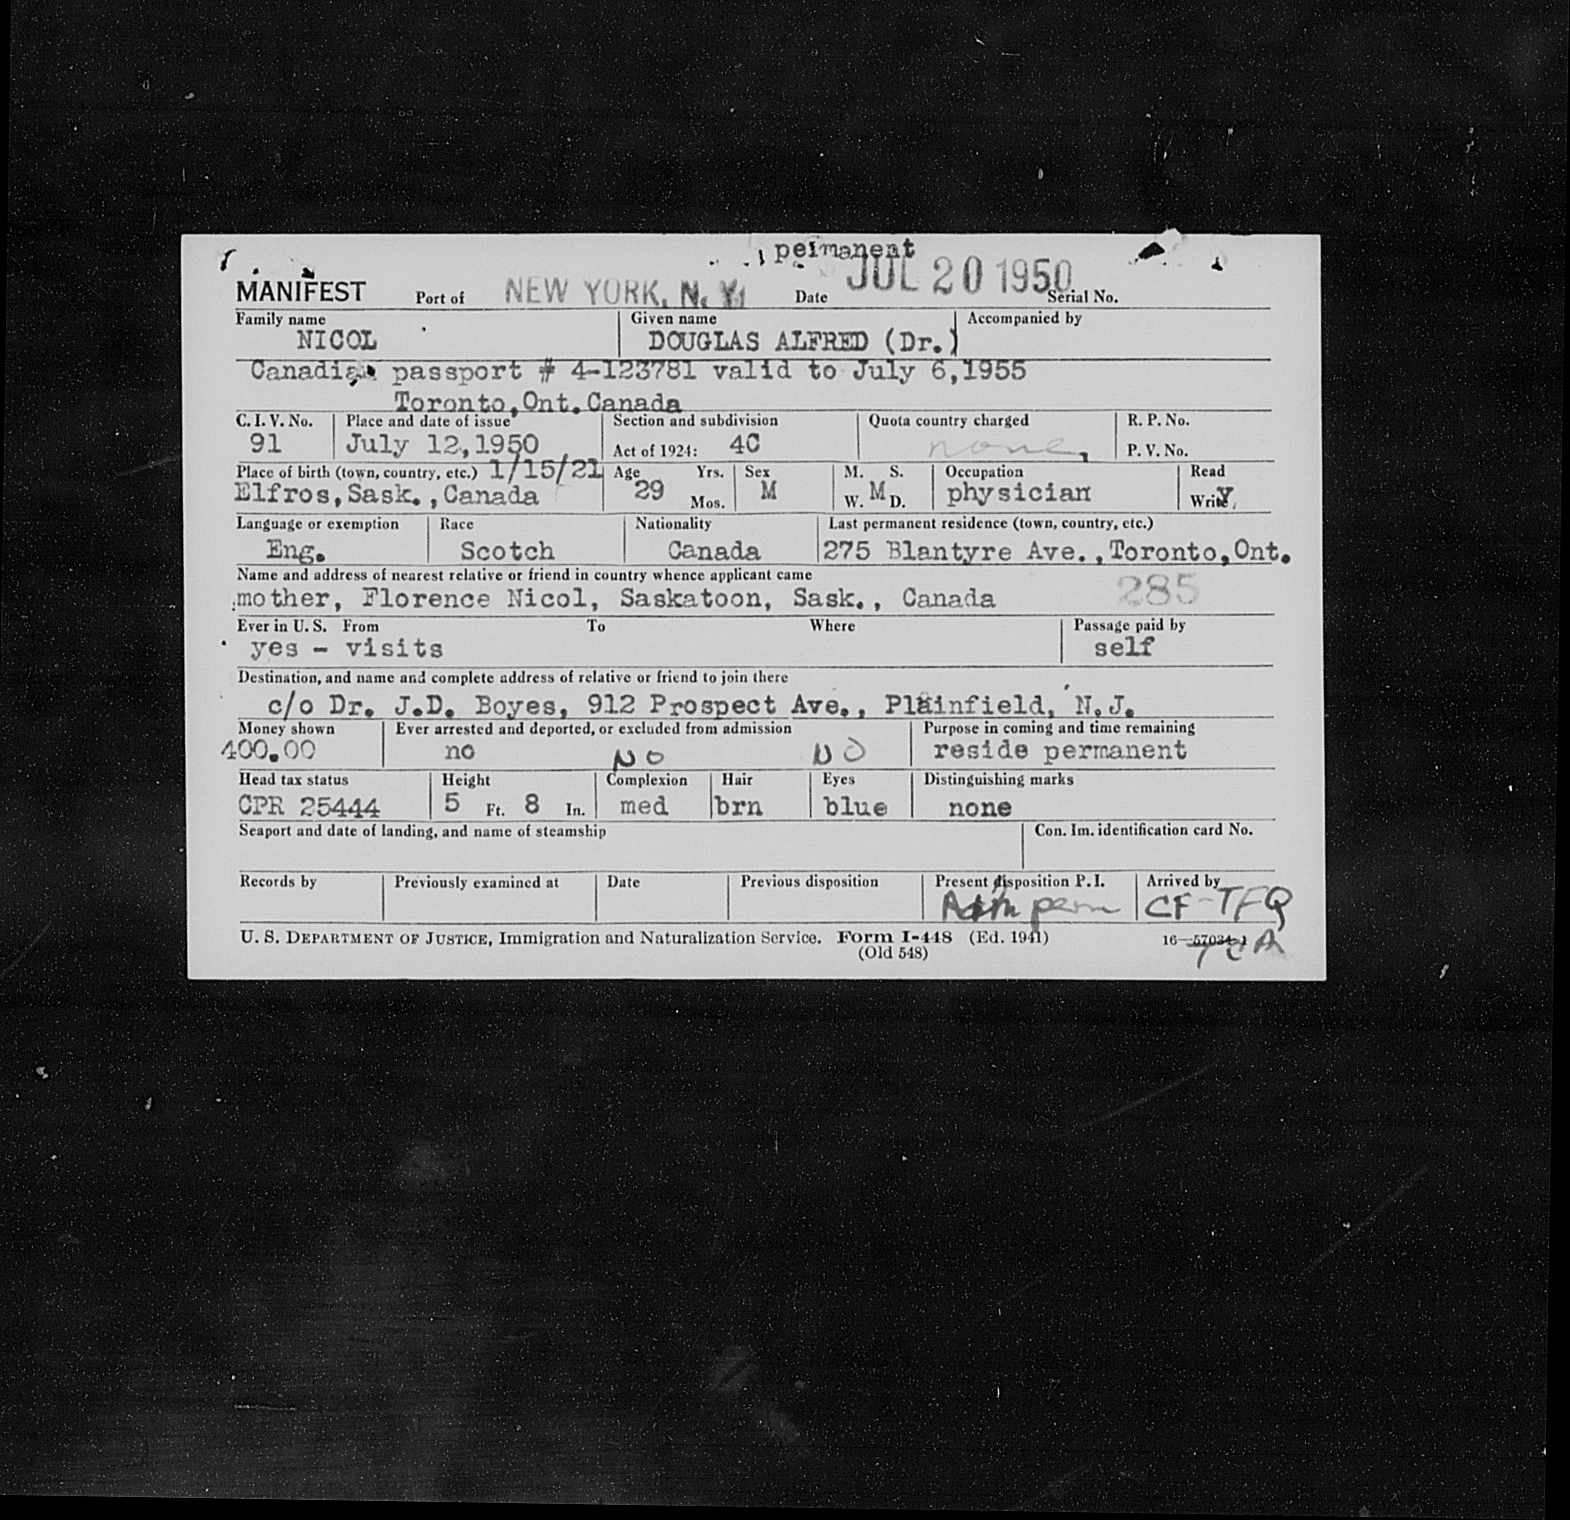 permanent
MANIFEST Port of NEW YORK, N. Y. Date JUL 20 1950 Serial No.
Family name Given name Accompanied by
NICOL DOUGLAS ALFRED (Dr.)
Canadian passport # 4-123781 valid to July 6,1955
Toronto,Ont.Canada
C. I. V. No. Place and date of issue Section and subdivision Quota country charged R. P. No.
91 July 12,1950 Act of 1924: 4C none, P. V. No.
Place of birth (town, country, etc.) 1/15/21 Age Yrs. Sex M. S. Occupation Read
Elfros,Sask.,Canada 29 Mos. M W. M D. physician Write Y
Language or exemption Race Nationality Last permanent residence (town, country, etc.)
Eng. Scotch Canada 275 Blantyre Ave.,Toronto,Ont.
Name and address of nearest relative or friend in country whence applicant came
mother, Florence Nicol, Saskatoon, Sask., Canada 285
Ever in U. S. From To Where Passage paid by
yes - visits self
Destination, and name and complete address of relative or friend to join there
c/o Dr. J.D. Boyes, 912 Prospect Ave., Plainfield, N.J.
Money shown Ever arrested and deported, or excluded from admission Purpose in coming and time remaining
400.00 no NO NO reside permanent
Head tax status Height Complexion Hair Eyes Distinguishing marks
CPR 25444 5 Ft. 8 In. med brn blue none
Seaport and date of landing, and name of steamship Con. Im. identification card No.
Records by Previously examined at Date Previous disposition Present disposition P. I. Arrived by
Adm perm CF-TFQ
U. S. DEPARTMENT OF JUSTICE, Immigration and Naturalization Service. Form I-448 (Ed. 1941) 16—57034-1
(Old 548) TCA